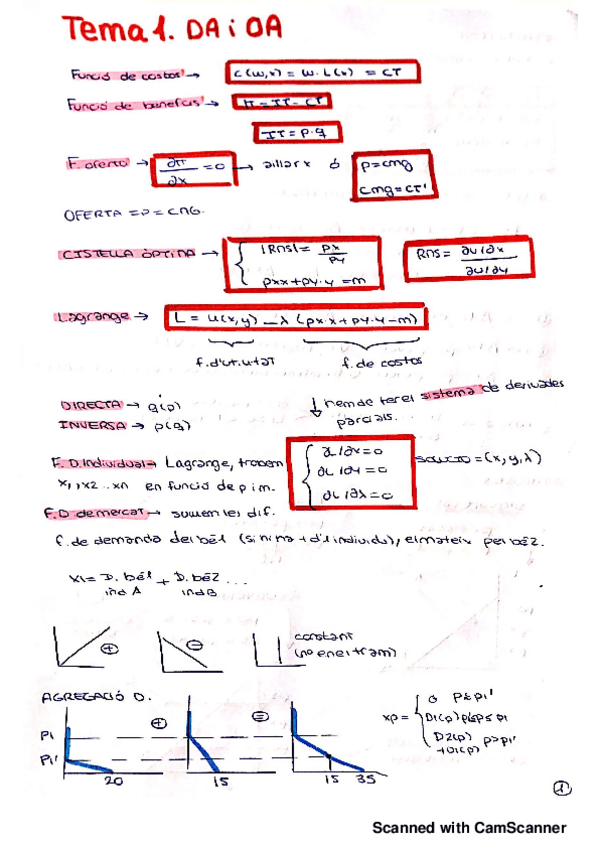 Tema 1. DA i OA
Funció de costos → C(w,x) = w·L(x) = CT
Funció de beneficis → π = IT - CT
IT = p·q
F. oferta → ∂π/∂x = 0 → aïllar x ó p = cmg
cmg = CT'
OFERTA = P = CMG.
CISTELLA ÒPTIMA → { |RMS| = px/py
pxx + py·y = m
RMS = ∂u/∂x / ∂u/∂y
Lagrange → L = u(x,y) - λ (px·x + py·y - m)
f. d'utilitat f. de costos
DIRECTA → q(p)
INVERSA → p(q)
↓ hem de fer el sistema de derivades parcials.
F. D. Individual → Lagrange, trobem
x1, x2 ... xn en funció de p i m.
{ ∂L/∂x = 0
∂L/∂y = 0
∂L/∂λ = 0
solució = (x, y, λ)
F.D de mercat → sumem les dif.
f. de demanda del bé 1 (si hi ha + d'1 individu), el mateix pel bé 2.
x1 = D. bé 1 + D. bé 2 ...
ind A ind B
⊕ ⊖ constant
(no ene i tram)
AGREGACIÓ D.
P1 ⊕ ⊜
P1'
20 15 15 35
xp = { 0 p≥p1'
D1(p) p1≤p≤p1
D2(p) p>p1'
+D1(p)
1
Scanned with CamScanner